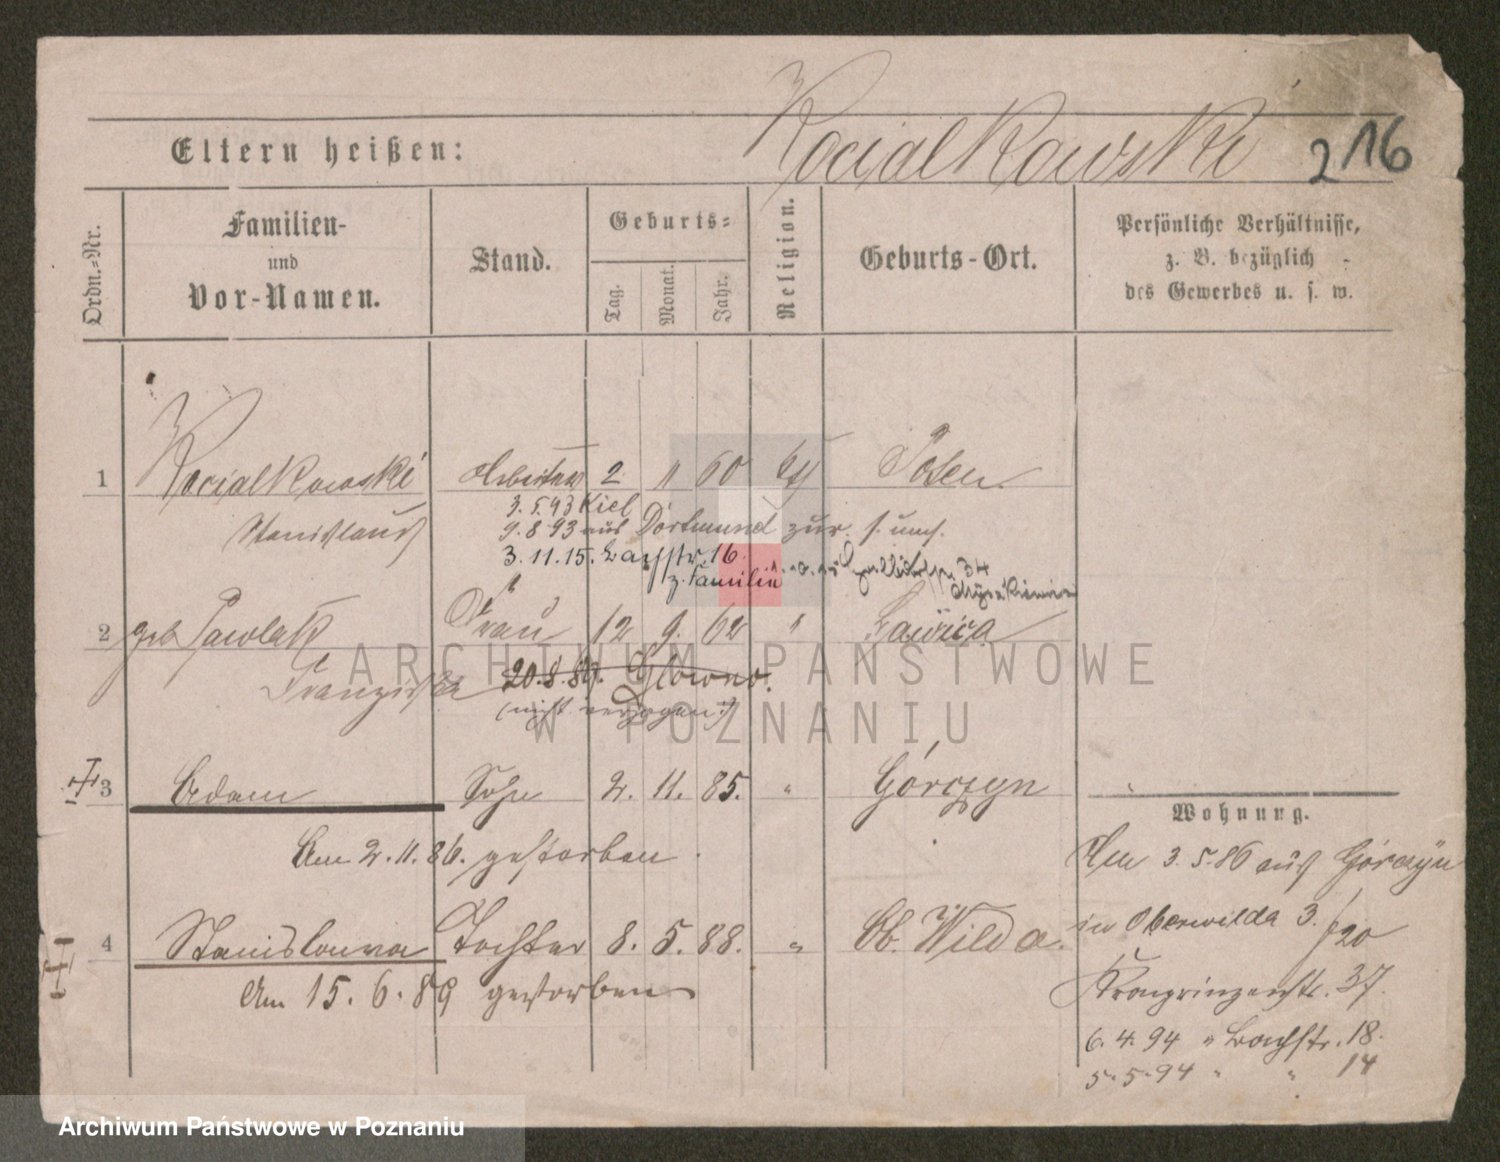 Kocialkowski
216
Eltern heißen:
Ordn.-Nr.
Familien-
und
Vor-Namen.
Stand.
Geburts-
Tag.
Monat.
Jahr.
Religion.
Geburts-Ort.
Persönliche Verhältnisse,
z. B. bezüglich
des Gewerbes u. s. w.
1 Kocialkowski Arbeiter 2 11 60 kth Posen
Stanislaus
3.5.93 Kiel
9.8.93 aus Dortmund zur.
3.11.15. Bachstr. 16.
z. Familie
34
2 geb Pawlak Frau 12 9. 62 " Lawica
Franziska
20.8.89. Glowno.
(nicht verzogen)
3 Adam Sohn 2. 11. 85. " Górczyn
Am 2.11.86. gestorben.
Wohnung.
Am 3.5.86 aus Górczyn
4 Stanislawa Tochter 8. 5. 88. " Ob. Wilda.
in Oberwilda 3./20
Am 15.6.89 gestorben
Kronprinzenstr. 37.
6.4.94 " Bachstr. 18.
5.5.94 " " 14
ARCHIWUM PAŃSTWOWE
W POZNANIU
Archiwum Państwowe w Poznaniu